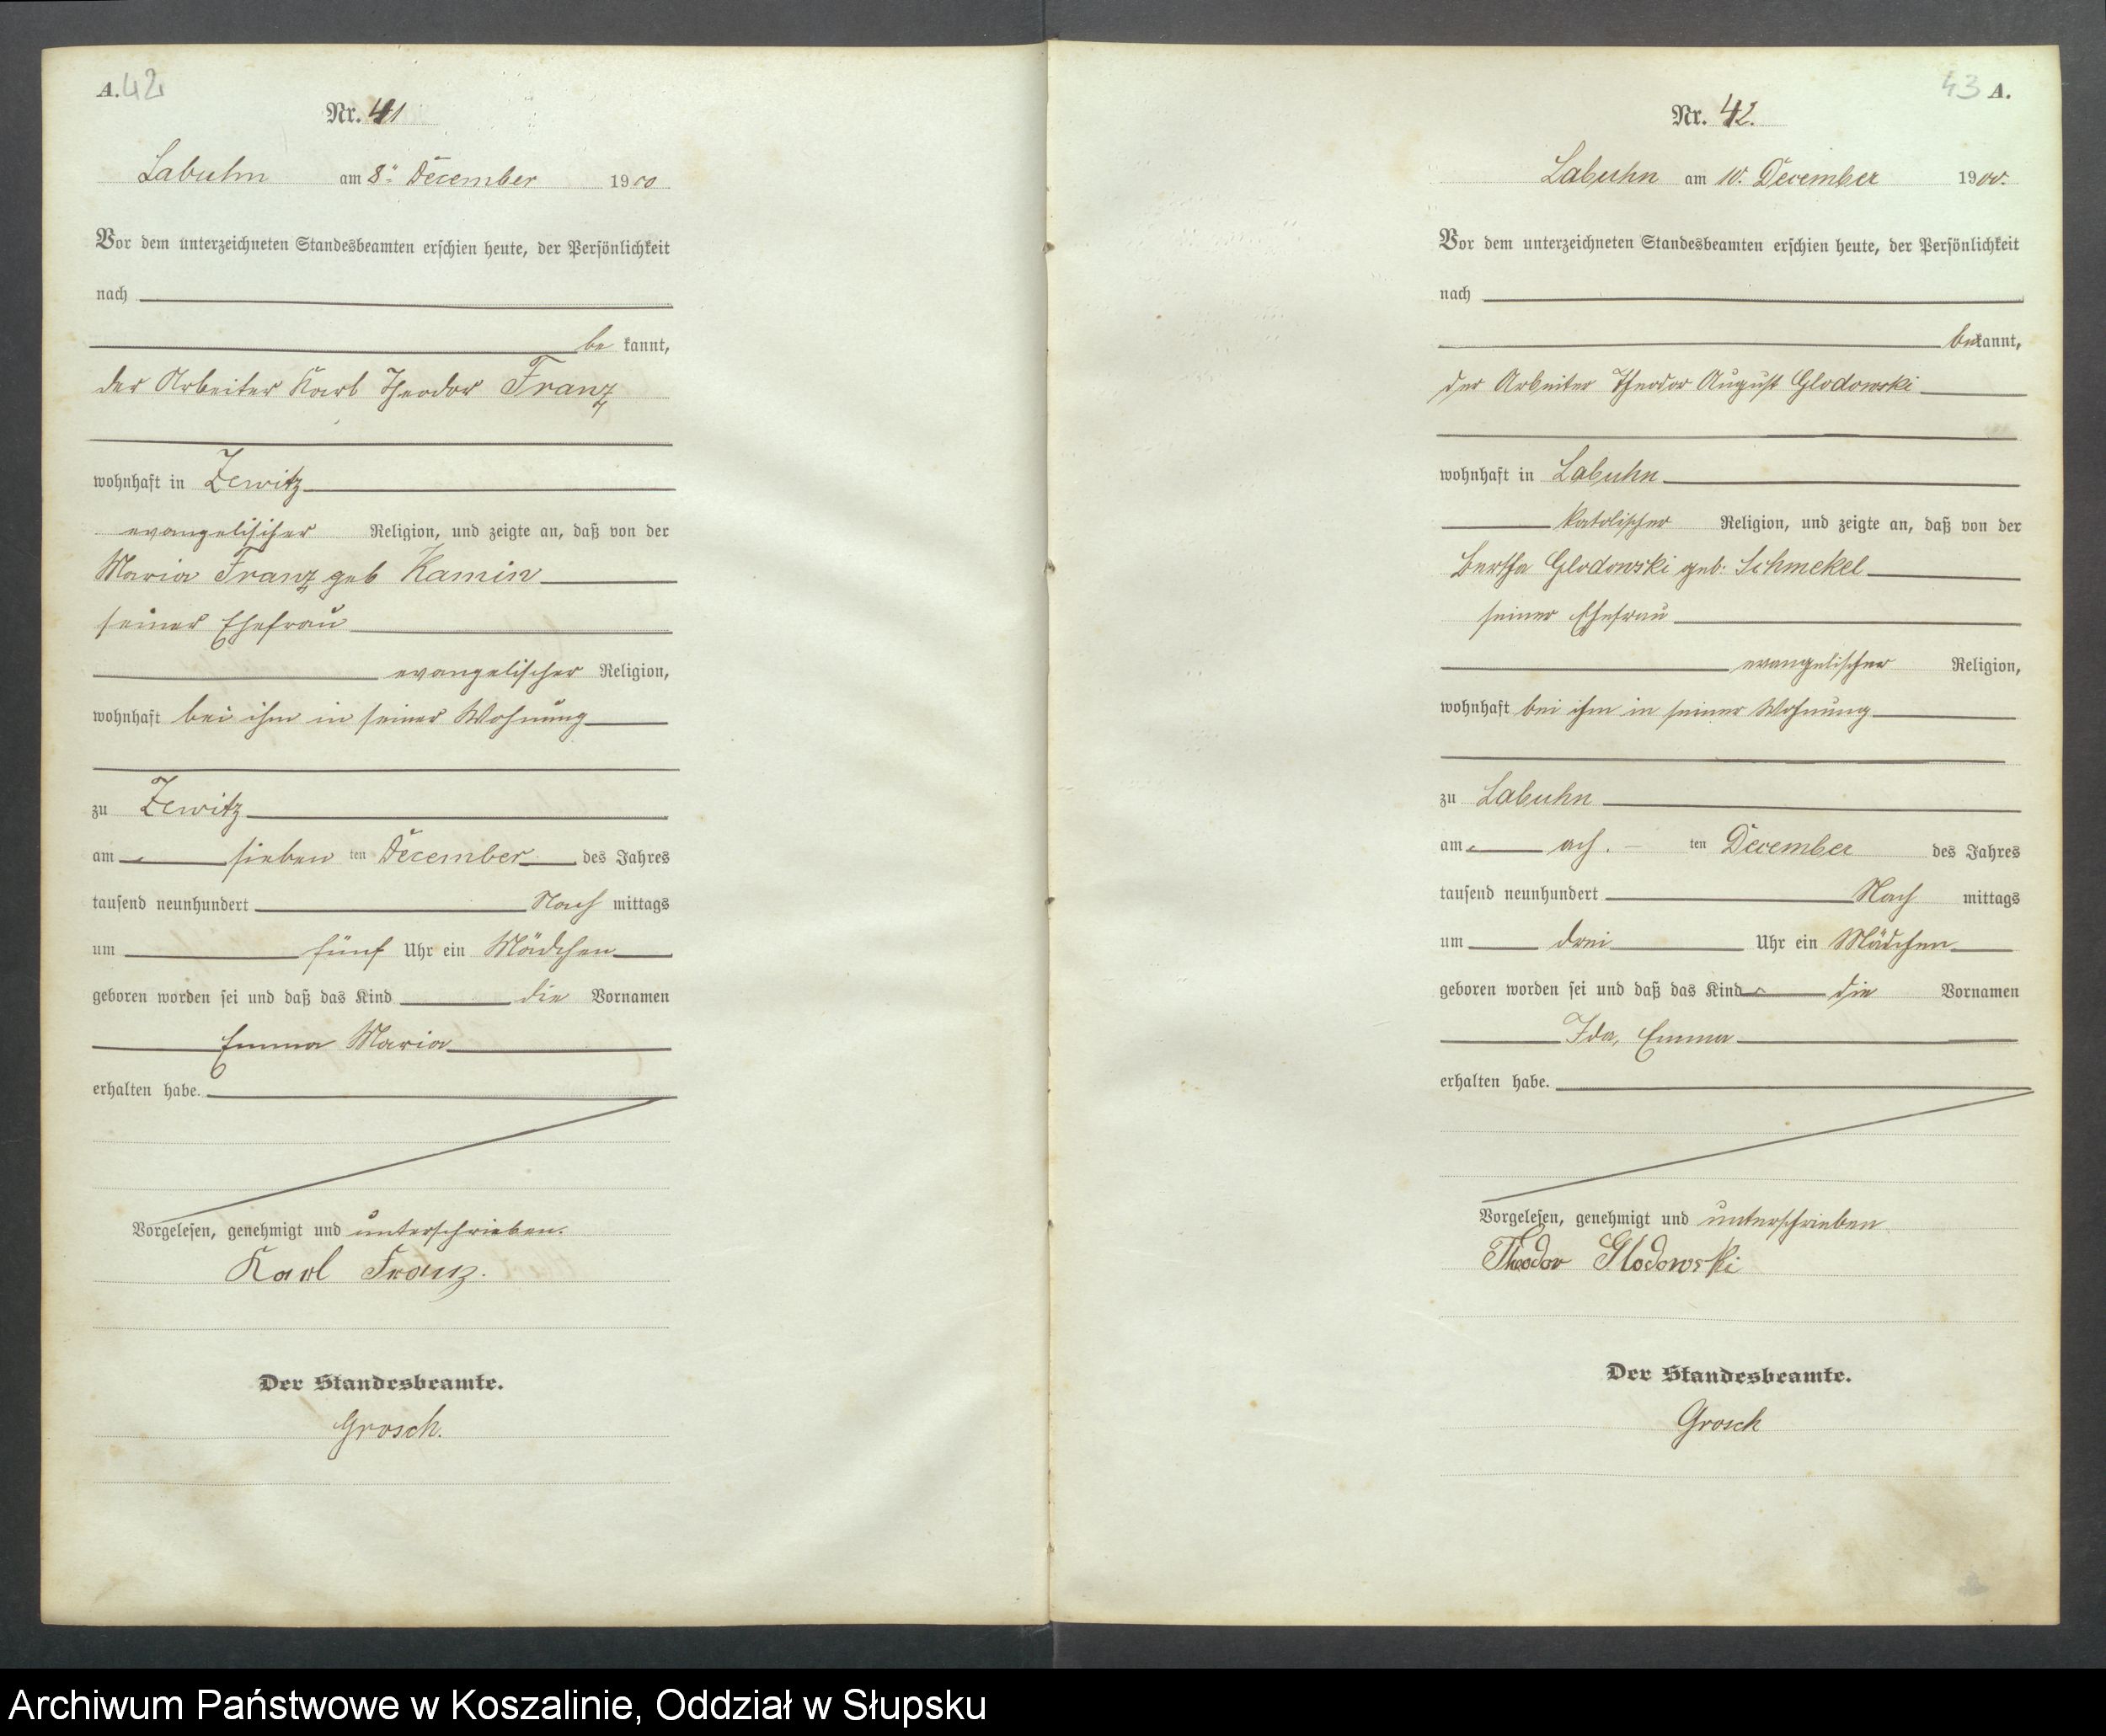 A. 42
Nr. 41
Labuhn am 8ten December 1900
Vor dem unterzeichneten Standesbeamten erschien heute, der Persönlichkeit
nach
be kannt,
der Arbeiter Karl Theodor Franz
wohnhaft in Zewitz
evangelischer Religion, und zeigte an, daß von der
Maria Franz geb Kamin
seiner Ehefrau
evangelischer Religion,
wohnhaft bei ihm in seiner Wohnung
zu Zewitz
am sieben ten December des Jahres
tausend neunhundert Nach mittags
um fünf Uhr ein Mädchen
geboren worden sei und daß das Kind die Vornamen
Emma Maria
erhalten habe.
Vorgelesen, genehmigt und unterschrieben.
Karl Franz.
Der Standesbeamte.
Grosch.
43 A.
Nr. 42.
Labuhn am 10. December 1900.
Vor dem unterzeichneten Standesbeamten erschien heute, der Persönlichkeit
nach
bekannt,
der Arbeiter Theodor August Glodowski
wohnhaft in Labuhn
katolischer Religion, und zeigte an, daß von der
Bertha Glodowski geb. Schmekel
seiner Ehefrau
evangelischer Religion,
wohnhaft bei ihm in seiner Wohnung
zu Labuhn
am ach. ten December des Jahres
tausend neunhundert Nach mittags
um drei Uhr ein Mädchen
geboren worden sei und daß das Kind die Vornamen
Ida, Emma
erhalten habe.
Vorgelesen, genehmigt und unterschrieben
Theodor Glodowski
Der Standesbeamte.
Grosch
Archiwum Państwowe w Koszalinie, Oddział w Słupsku